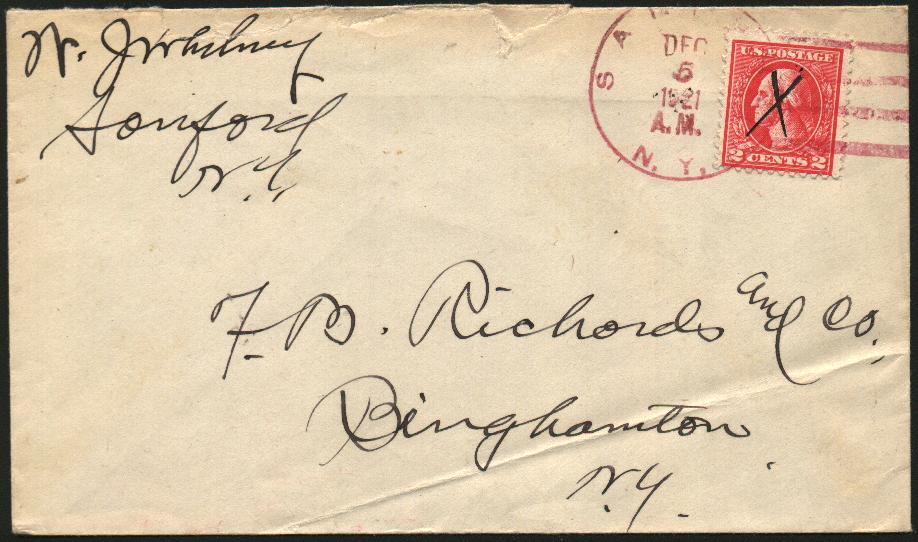 W. J Whitney
Sanford
N.Y.
SA
DEC
5
1921
A.M.
N. Y.
U.S. POSTAGE
2 CENTS 2
F. B. Richards and Co.,
Binghamton
N.Y.